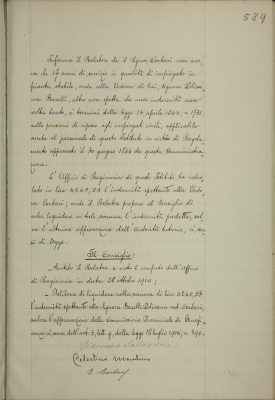 589
Informa il Relatore che il Signor Corbari non ave-
va che 17 anni di servizio in qualità di impiegato in
pianta stabile, onde alla Vedova di lui, Signora
Baselli, altro non spetta che una indennità una
volta tanto, a termini della legge 14 aprile 1864, n. 1731,
sulle pensioni di riposo agli impiegati civili, applicabile
anche al personale di questo Istituto in virtù di Regola-
mento approvato il 30 giugno 1864 da questa Amministra-
zione.
L'Ufficio di Ragioneria di questo Istituto ha calco-
lato in lire 4240,53 l'indennità spettante alla Vedo-
va Corbari; onde il Relatore propone al Consiglio di
voler liquidare in tale somma l'indennità predetta, sal-
va l'ulteriore approvazione dell'Autorità tutoria, ai sen-
si di legge.
Il Consiglio;
Sentito il Relatore e visto il computo dell'Ufficio
di Ragioneria in data 28 Ottobre 1910;
Delibera di liquidare nella somma di lire 4240,53
l'indennità spettante alla Signora Baselli ved. Corbari,
salva l'approvazione della Commissione Provinciale di Benefi-
cenza, ai sensi dell'art. 5, lett. g, della legge 18 luglio 1904, n. 390.